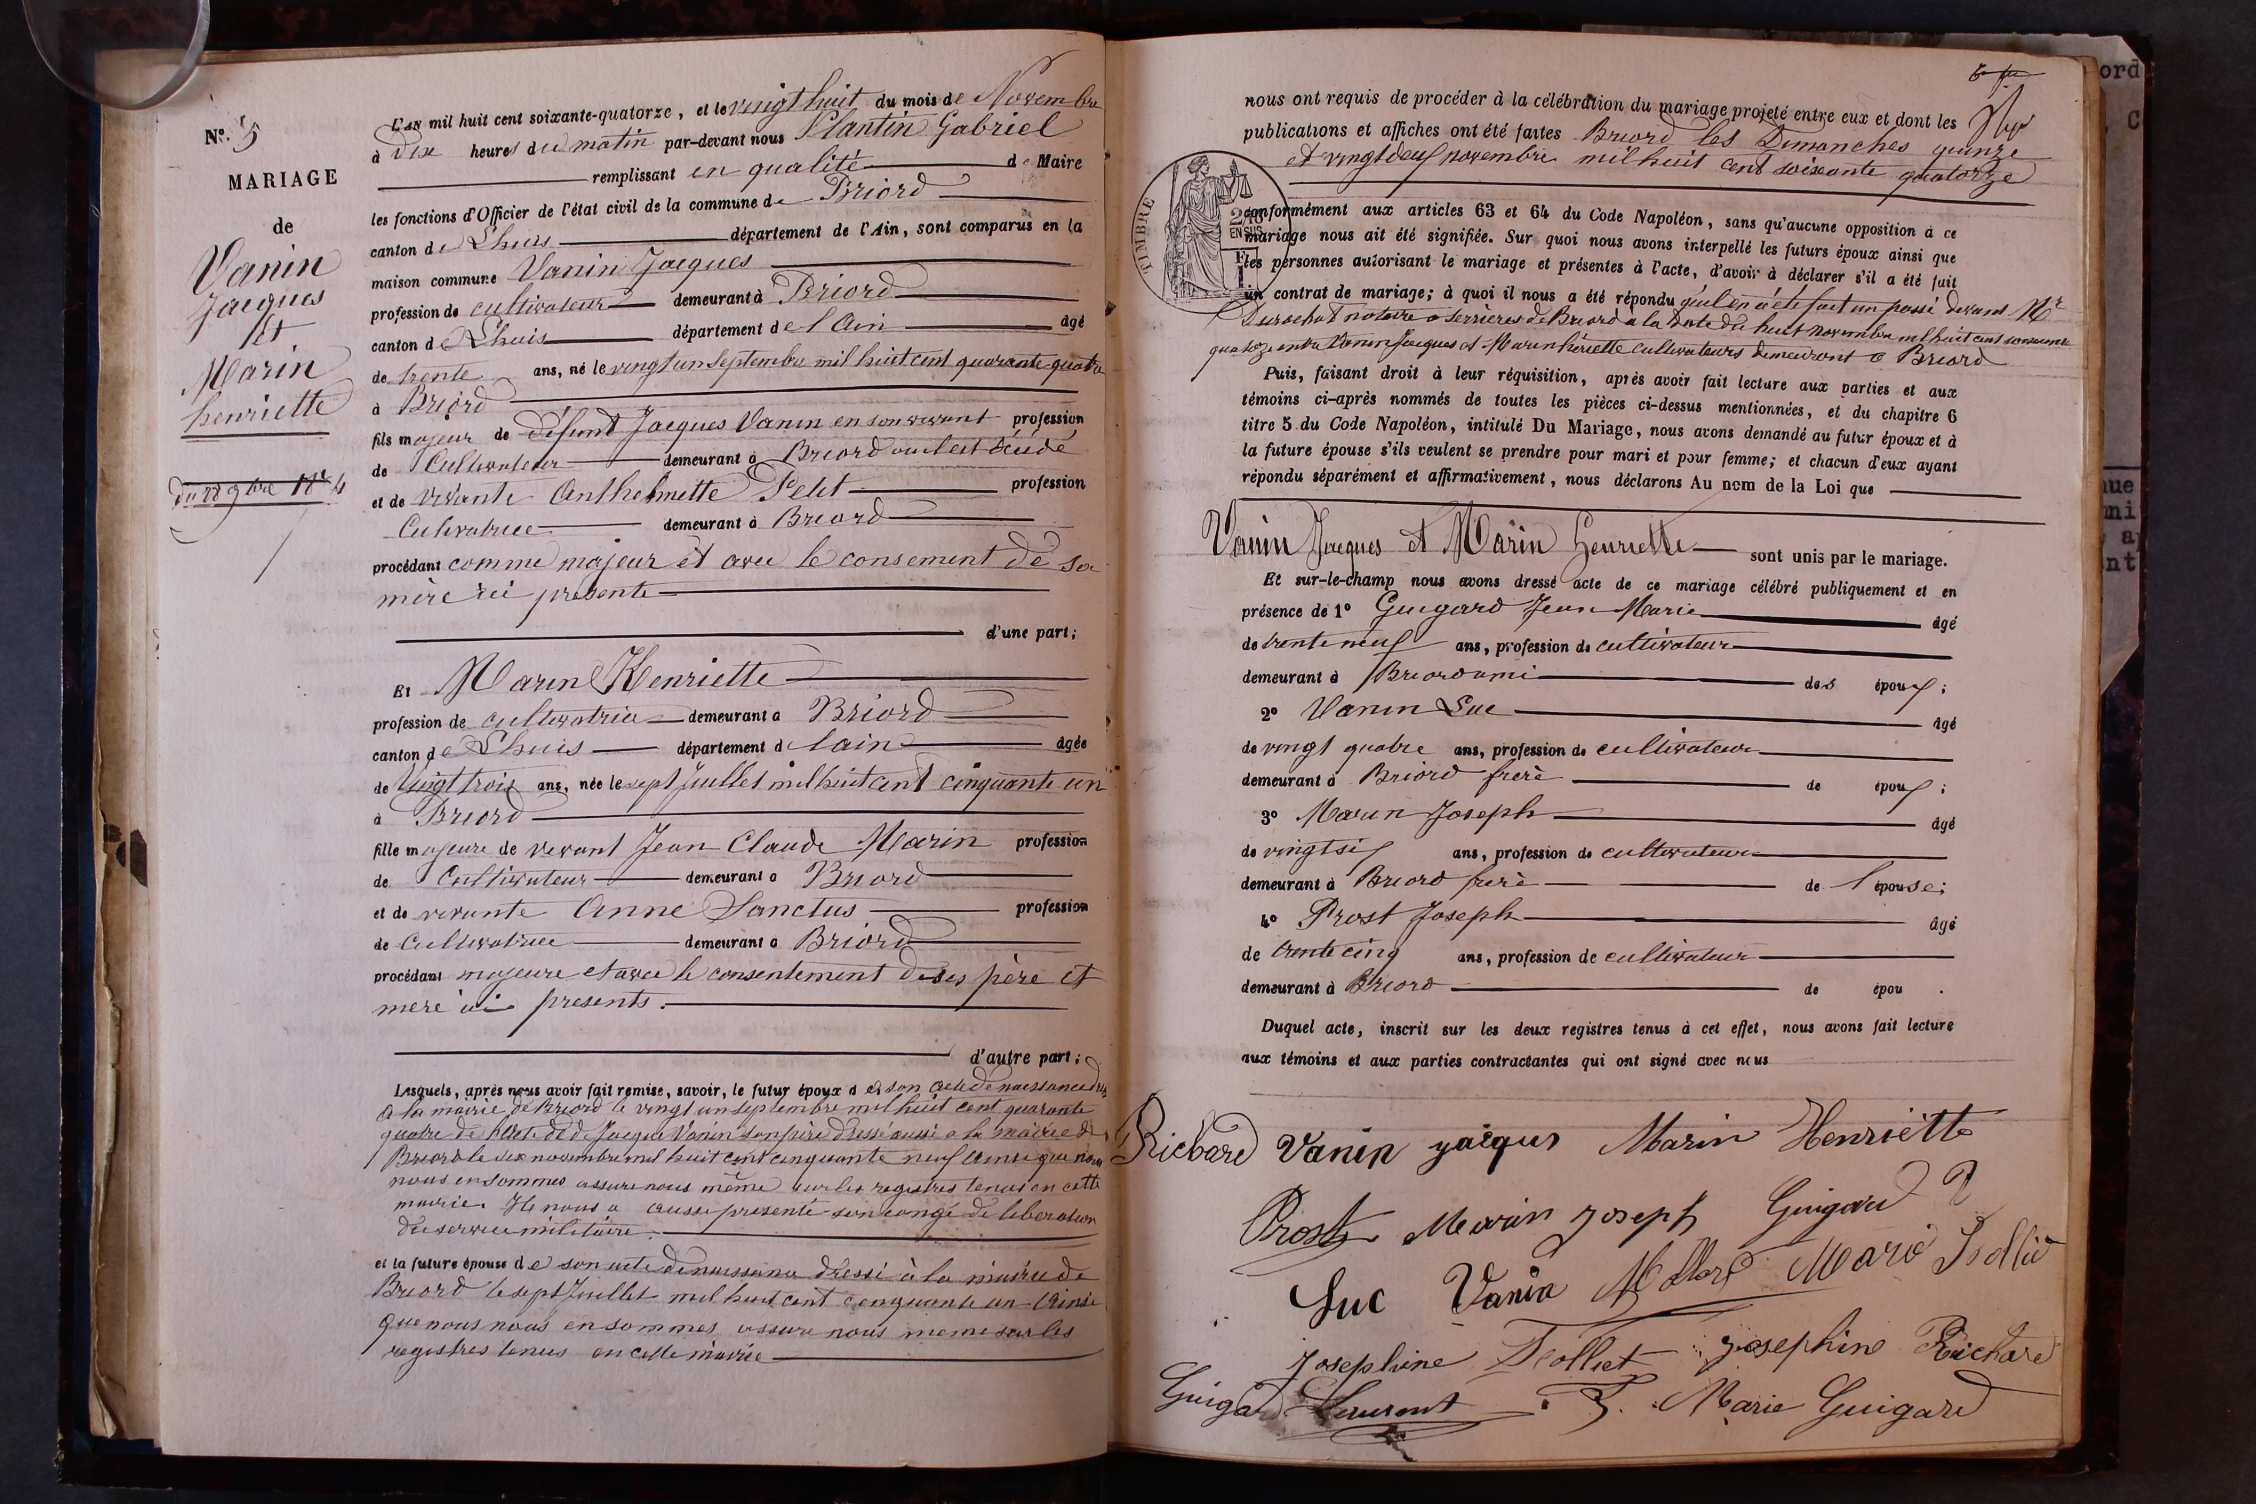 N° 5
MARIAGE
de
Vanin
Jacques
et
Marin
henriette
du 28 9bre 1874
L'an mil huit cent soixante-quatorze, et le vingt huit du mois de Novembre
à dix heures du matin par-devant nous Plantin Gabriel
remplissant en qualité de Maire
les fonctions d'Officier de l'état civil de la commune de Briord
canton de Lhuis département de l'Ain, sont comparus en la
maison commune Vanin Jacques
profession de cultivateur demeurant à Briord
canton de Lhuis département de l'Ain âgé
de trente ans, né le vingt un Septembre mil huit cent quarante quatre
à Briord
fils majeur de défunt Jacques Vanin en son vivant profession
de Cultivateur demeurant à Briord ou il est décédé
et de vivante Anthelmette Petit profession
Cultivatrice demeurant à Briord
procédant comme majeur et avec le consement de sa
mère ici présente
d'une part;
Et Marin Henriette
profession de cultivatrice demeurant à Briord
canton de Lhuis département de lain âgée
de Vingt trois ans, née le sept Juillet mil huit cent cinquante un
à Briord
fille majeure de vivant Jean Claude Marin profession
de Cultivateur demeurant à Briord
et de vivante Anne Sanctus profession
de Cultivatrice demeurant à Briord
procédant majeure et avec le consentement de ses père et
mère ici presents.
d'autre part;
Lesquels, après nous avoir fait remise, savoir, le futur époux de son acte de naissance
à la mairie de Briord le vingt un septembre mil huit cent quarante
quatre de l'acte de Jacques Vanin son père dressé aussi a la mairie de
Briord le dix novembre mil huit cent cinquante neuf ainsi que nous
nous en sommes assure nous même sur les registres tenus en cette
mairie. Il nous a aussi presenté son congé de liberation
du service militaire.
et la future épouse de son acte de naissance dressé à la mairie de
Briord le sept Juillet mil huit cent cinquante un Ainsi
que nous nous en sommes assure nous meme sur les
registres tenus en cette mairie
nous ont requis de procéder à la célébration du mariage projeté entre eux et dont les
publications et affiches ont été faites Briord les Dimanches quinze
et vingt deux novembre mil huit cent soixante quatorze
TIMBRE
2/10
EN SUS
conformément aux articles 63 et 64 du Code Napoléon, sans qu'aucune opposition à ce
mariage nous ait été signifiée. Sur quoi nous avons interpellé les futurs époux ainsi que
les personnes autorisant le mariage et présentes à l'acte, d'avoir à déclarer s'il a été fait
un contrat de mariage; à quoi il nous a été répondu qu'il en a été fait un passé devant Mr
notaire a Serrières de Briord à la date du huit novembre mil huit cent soixante
quatorze entre Vanin Jacques et Marin henriette cultivateurs demeurant a Briord
Puis, faisant droit à leur réquisition, après avoir fait lecture aux parties et aux
témoins ci-après nommés de toutes les pièces ci-dessus mentionnées, et du chapitre 6
titre 5 du Code Napoléon, intitulé Du Mariage, nous avons demandé au futur époux et à
la future épouse s'ils veulent se prendre pour mari et pour femme; et chacun d'eux ayant
répondu séparément et affirmativement, nous déclarons Au nom de la Loi que
Vanin Jacques et Marin henriette sont unis par le mariage.
Et sur-le-champ nous avons dressé acte de ce mariage célébré publiquement et en
présence de 1° Guigard Jean Marie âgé
de trente neuf ans, profession de cultivateur
demeurant à Briord ami des époux;
2° Vanin Luc âgé
de vingt quatre ans, profession de cultivateur
demeurant à Briord frère de époux;
3° Marin Joseph âgé
de vingt six ans, profession de cultivateur
demeurant à Briord frère de l'épouse;
4° Prost Joseph âgé
de trente cinq ans, profession de cultivateur
demeurant à Briord de épou .
Duquel acte, inscrit sur les deux registres tenus à cet effet, nous avons fait lecture
aux témoins et aux parties contractantes qui ont signé avec nous
Richard Vanin jacques Marin Henriette
Prost Marin Joseph Guigard
Luc Vanin Marie
Josephine Josephine Richard
Guigard Laurent Marie Guigard
ord